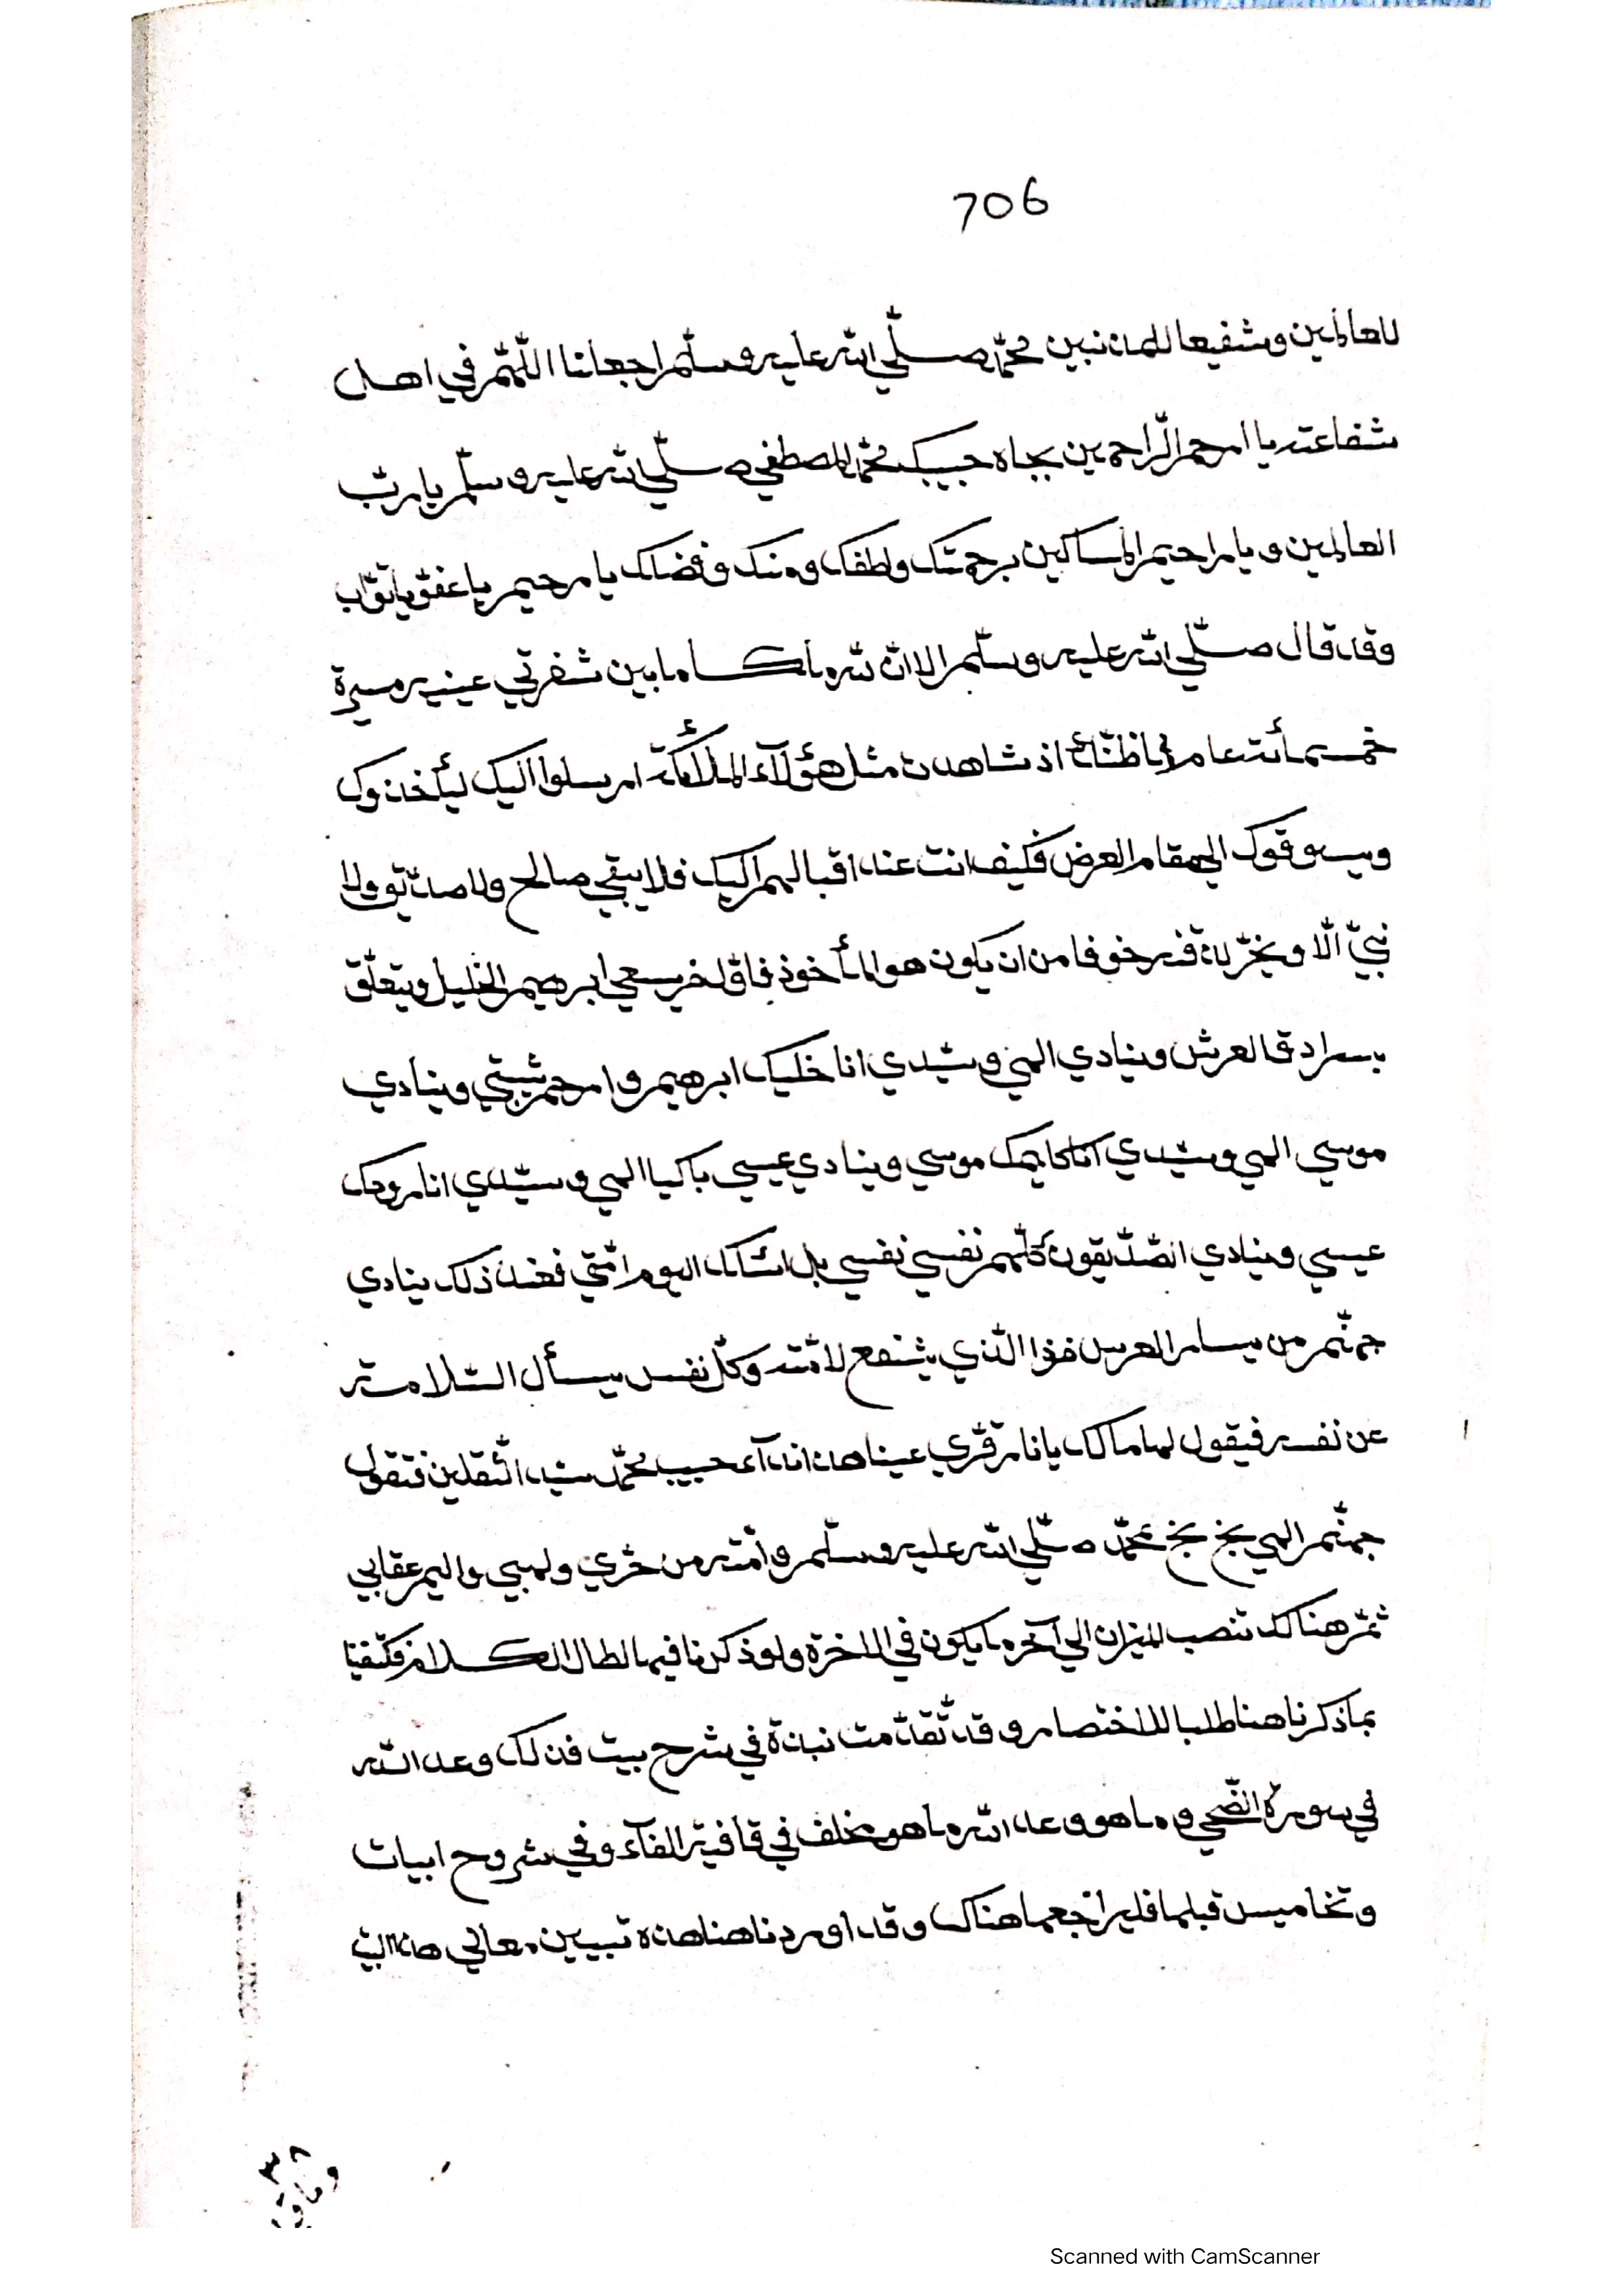 706
للعالمين وشفيعا للمذنبين محمّد صلّي الله عليه وسلّم اجعلنا اللّهمّ في اهل
شفاعته يا ارحم الرّاحمين بجاه حبيبك محمّد المصطفي صلّي الله عليه وسلّم يا ربّ
العالمين ويا راحيم المساكين برحمتك ولطفك ومنك وفضلك يا رحيم يا عفوّ يا توّاب
وقد قال صلّي الله عليه وسلّم الا انّ لله ملكا ما بين شفرتي عينيه مسيرة
خمسمأئة عام فما ظنّك اذ شاهدت مثل هؤلآء الملآئكة ارسلوا اليك ليأخذوك
ويسوقوك الي مقام العرض فكيف انت عند اقبالهم اليك فلا يبقي صالح ولا صدّيق ولا
نبيّ الّا ويخرّ لاذقنه خوفا من ان يكون هو المأخوذ فاوّل خر يسعي ابرهيم الخليل ويتعلّق
بسرادق العرش وينادي الهي وسيّدي انا خليلك ابرهيم وارحم شيبتي وينادي
موسي الهي وسيّدي انا كليمك موسي وينادي عيسي باكيا الهي وسيّدي انا روحك
عيسي وينادي الصّدّيقون كلّهم نفسي نفسي بل اسئلك اليوم امّتي فعند ذلك ينادي
جهنّم من يسار العرش فذا الّذي يشفع لامّته وكلّ نفس يسأل السّلامة
عن نفسه فيقول لها مالك يا نار قرّي عينا هذا ندآء حبيب محمّد سيّد الثّقلين فتقول
جهنّم الهي بخ بخ محمّد صلّي الله عليه وسلّم وامّته من حرّي ولهبي واليم عقابي
ثمّ هنالك تنصب الميزان الي آخر ما يكون في الاخرة ولو ذكرنا فيها لطال الكلام فكتفينا
بما ذكرنا هنا طلبا للاختصار وقد تّقدّمت نبذة في شرح بيت فذلك وعد الله
في سورة الضّحي وما هو وعد الله ما هو مخلف في قافية الفآء وفي شروح ابيات
وتخاميس قبلها فليراجعها هناك وقد اوردنا هنا هذه تبيين معاني هذا البيت